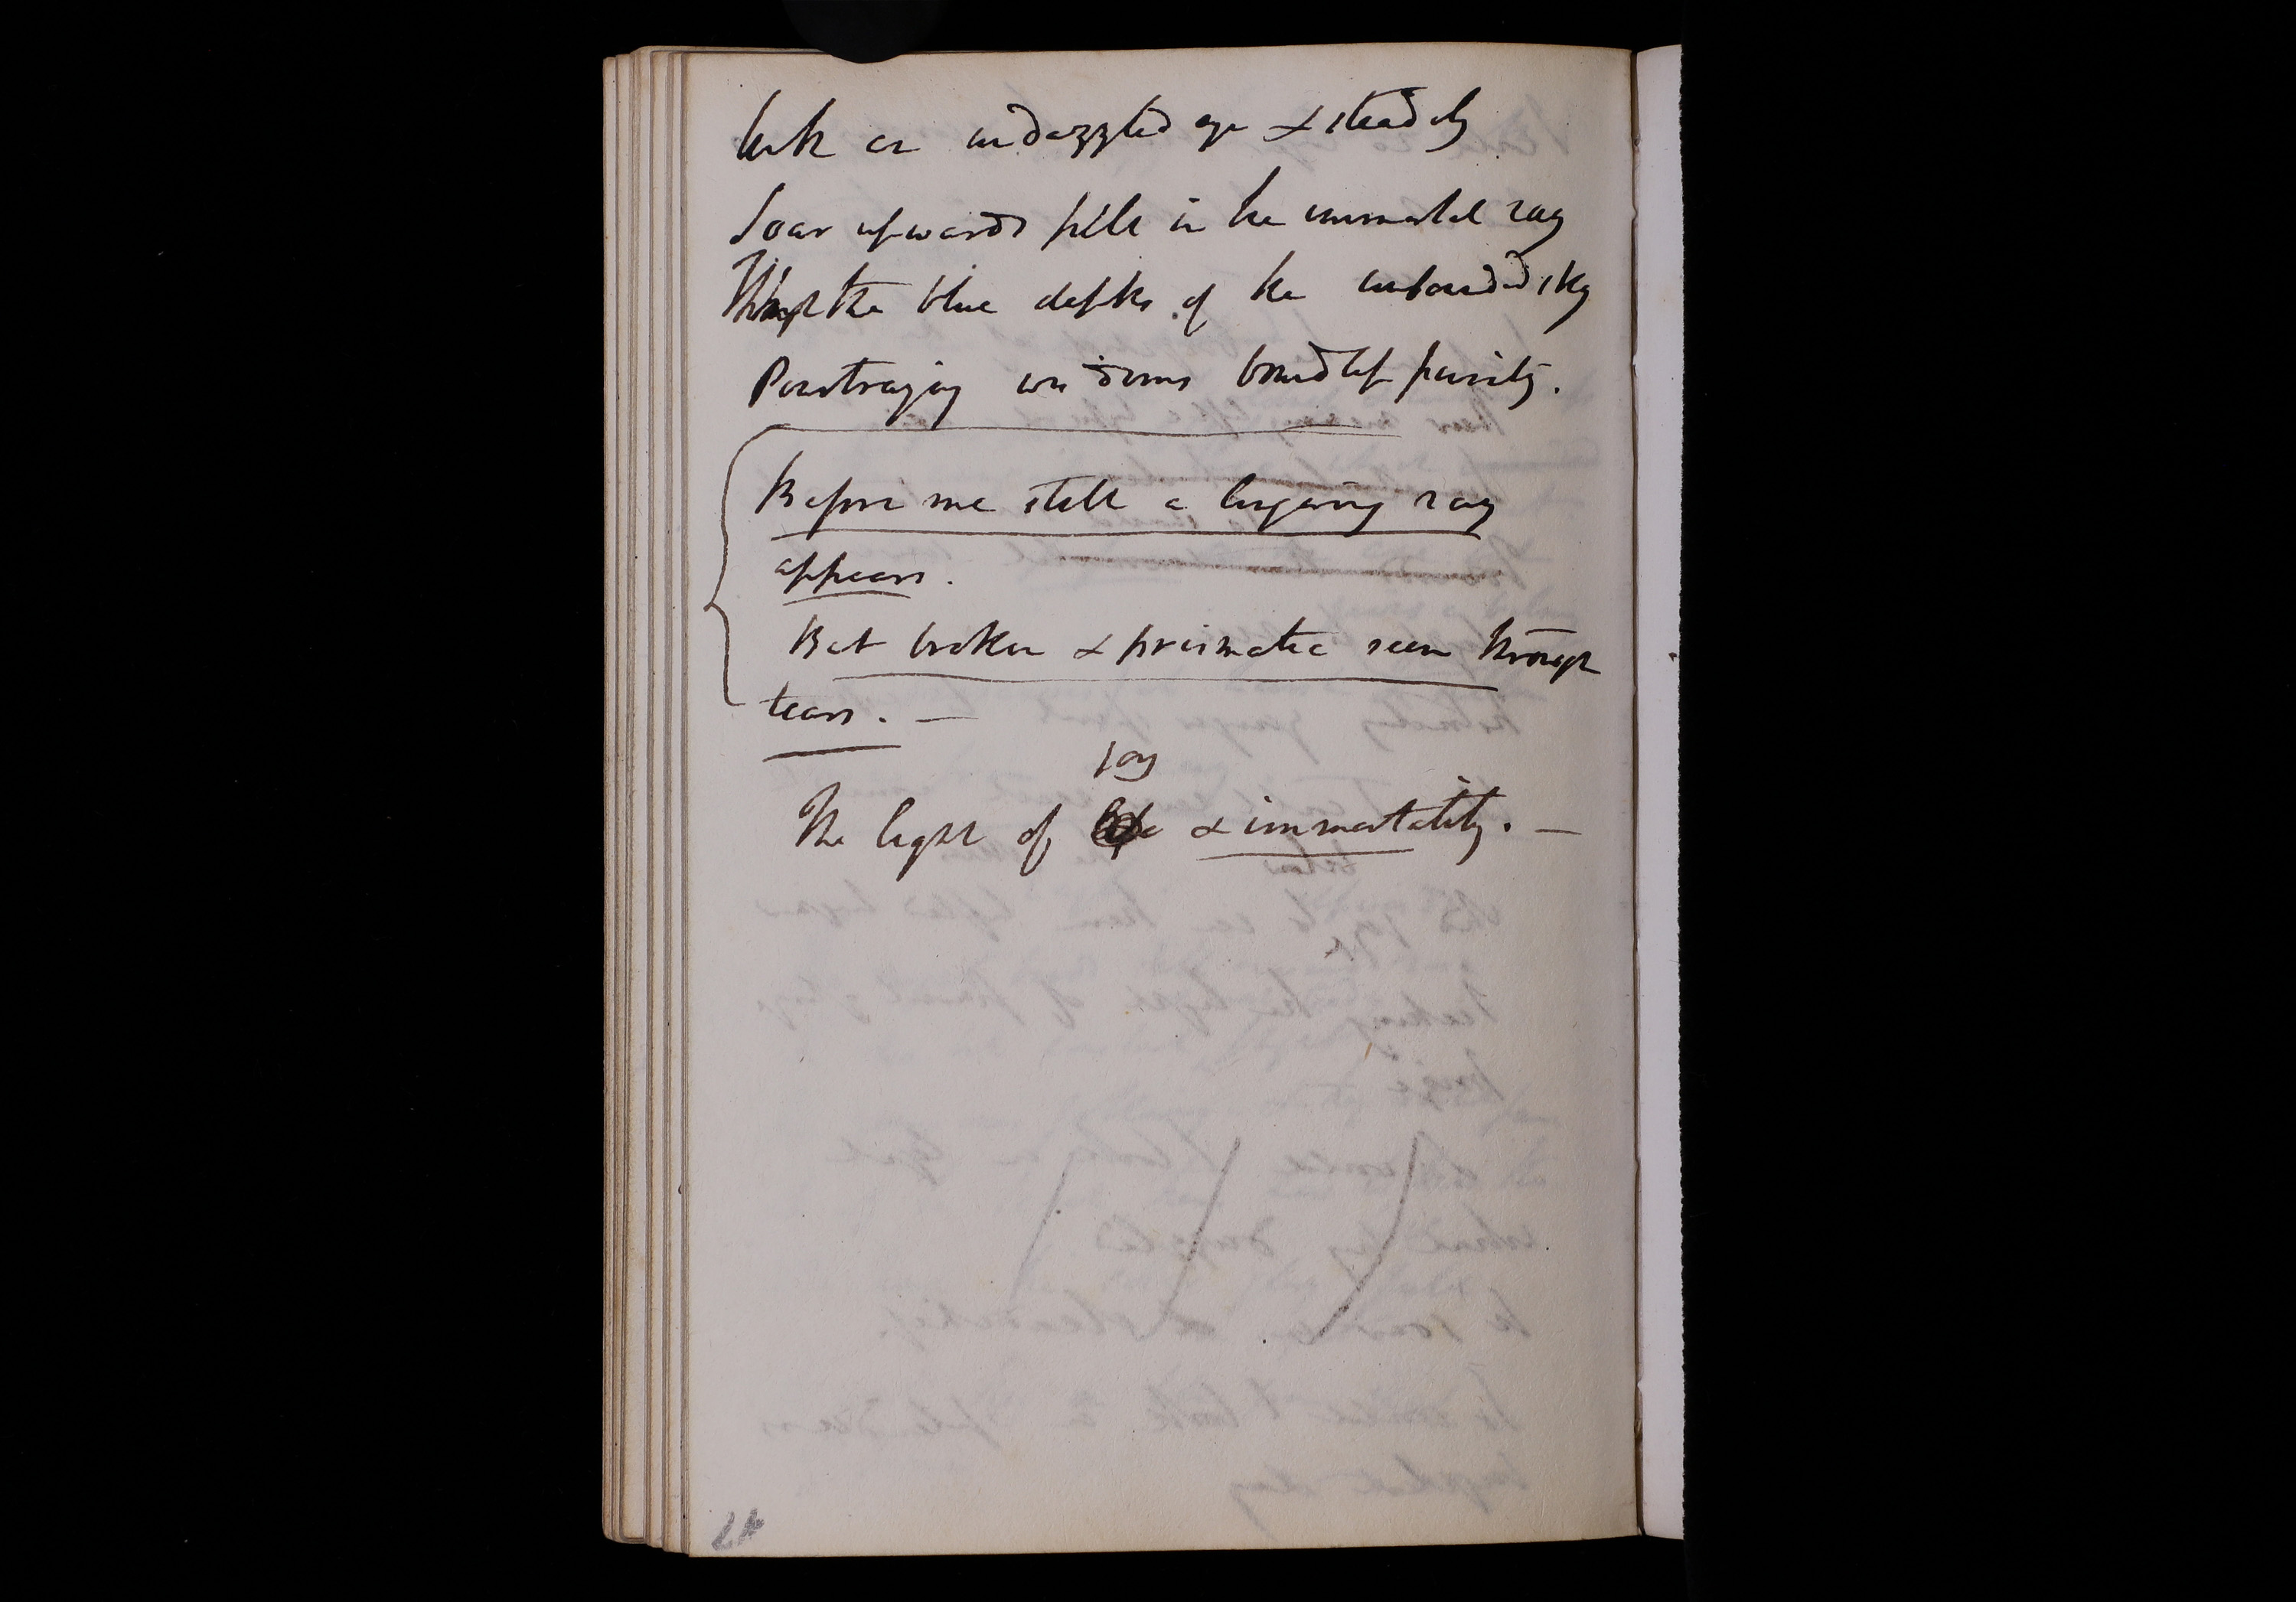 With an undazzled eye & steadily
Soar upwards still in the immortal ray
Through the blue depths of the unbounded sky
Pourtraying wisdoms boundless purity.
Before me still a lingering ray
appears.
But broken & prismatic seen through
tears. —
joy
The light of life & immortality. —